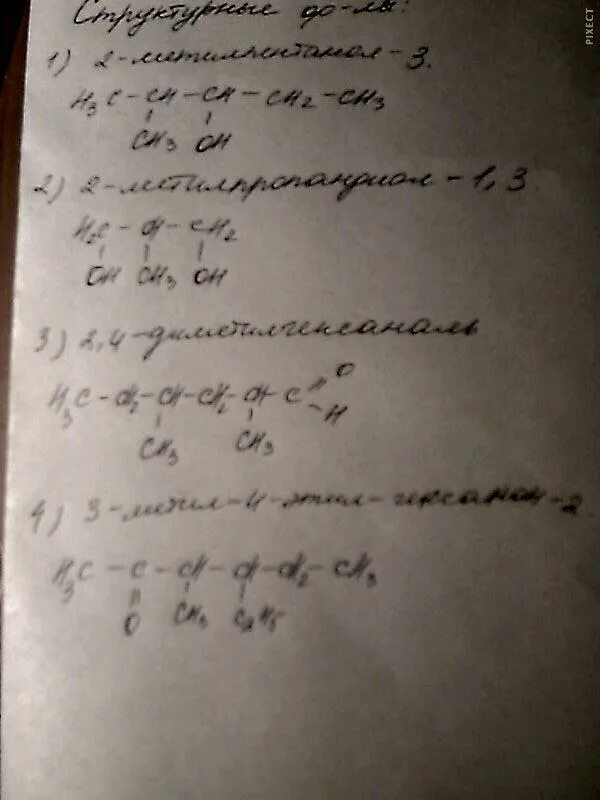 Структурные ф-лы:
1) 2-метилпентанол-3.
H₃C-CH-CH-CH₂-CH₃
CH₃ OH
2) 2-метилпропандиол-1,3
H₂C-CH-CH₂
OH CH₃ OH
3) 2,4-диметилгексаналь
H₃C-CH₂-CH-CH₂-CH-C=O
-H
CH₃ CH₃
4) 3-метил-4-этил-гексанон-2
H₃C-C-CH-CH-CH₂-CH₃
O CH₃ C₂H₅
PIXECT